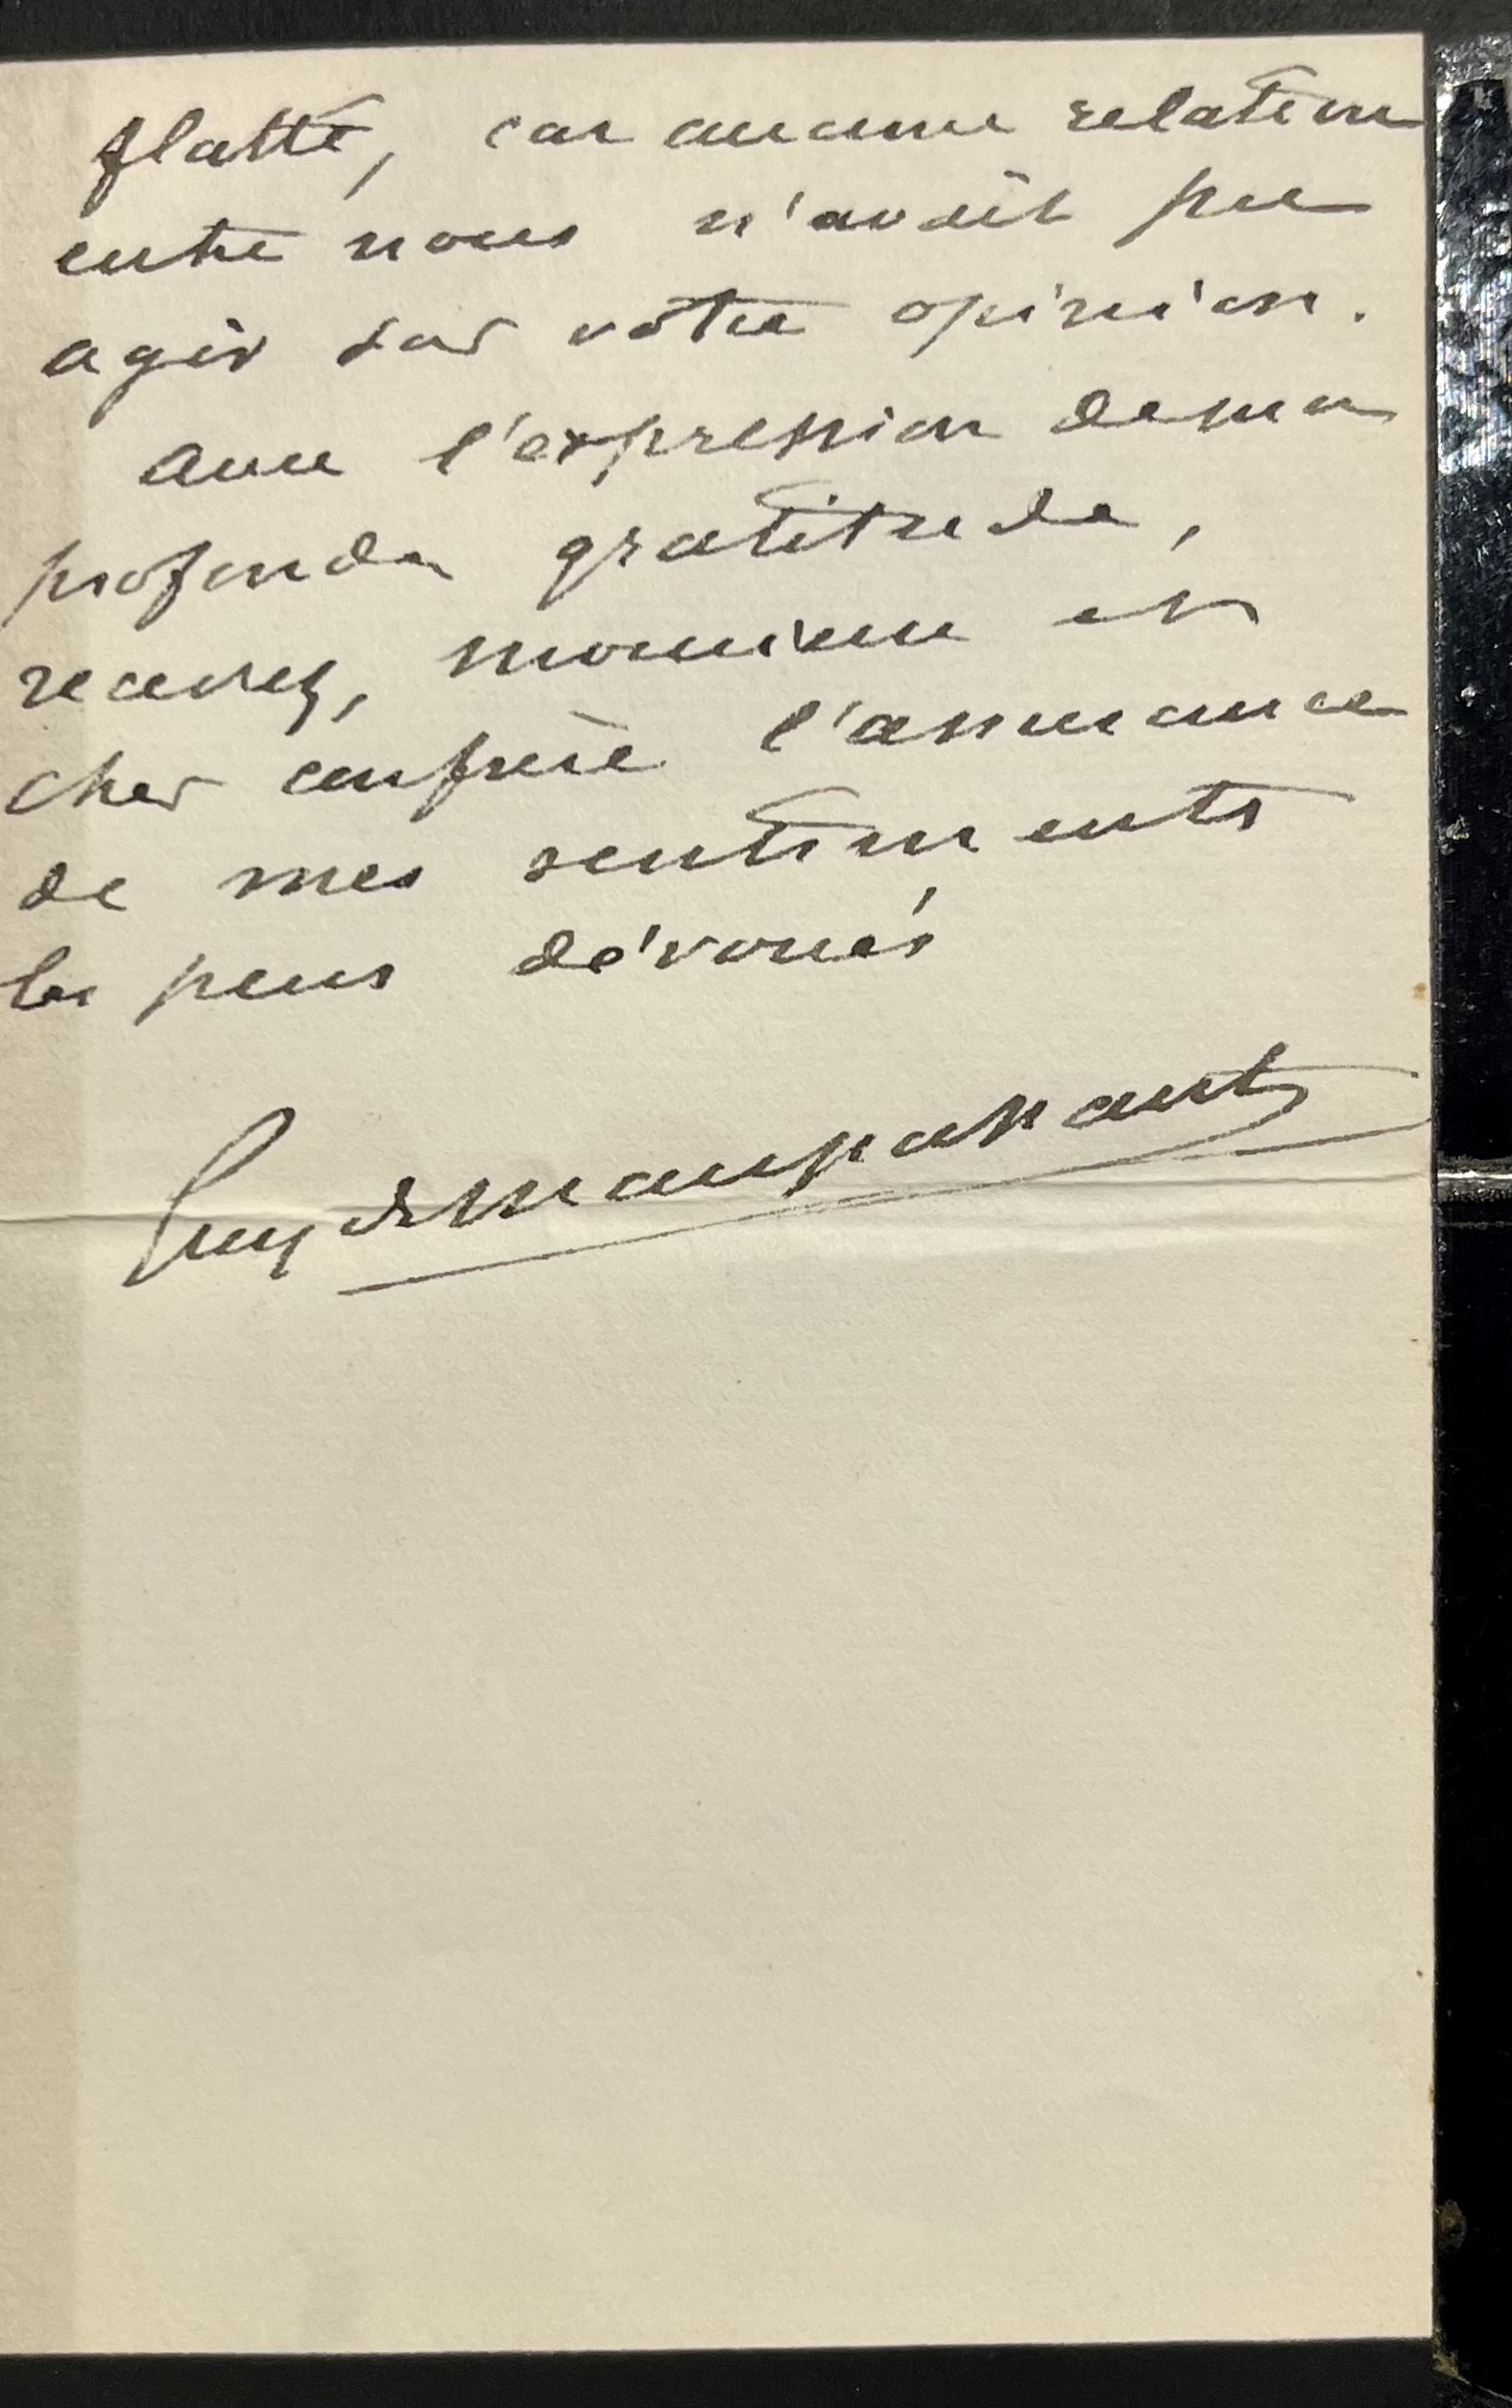 flatté, car aucune relation
entre nous n'avait pu
agir sur votre opinion.
Avec l'expression de ma
profonde gratitude,
recevez, monsieur et
cher confrère l'assurance
de mes sentiments
les plus dévoués
Guy de Maupassant